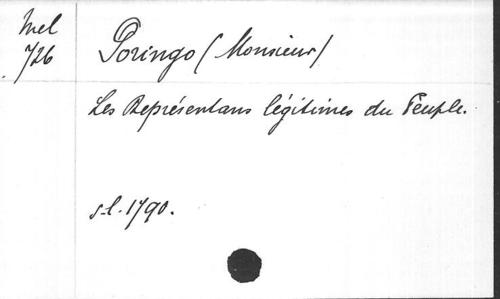 Mel
726
Poringo (Monsieur)
Les Représentans légitimes du Peuple.
s.l. 1790.